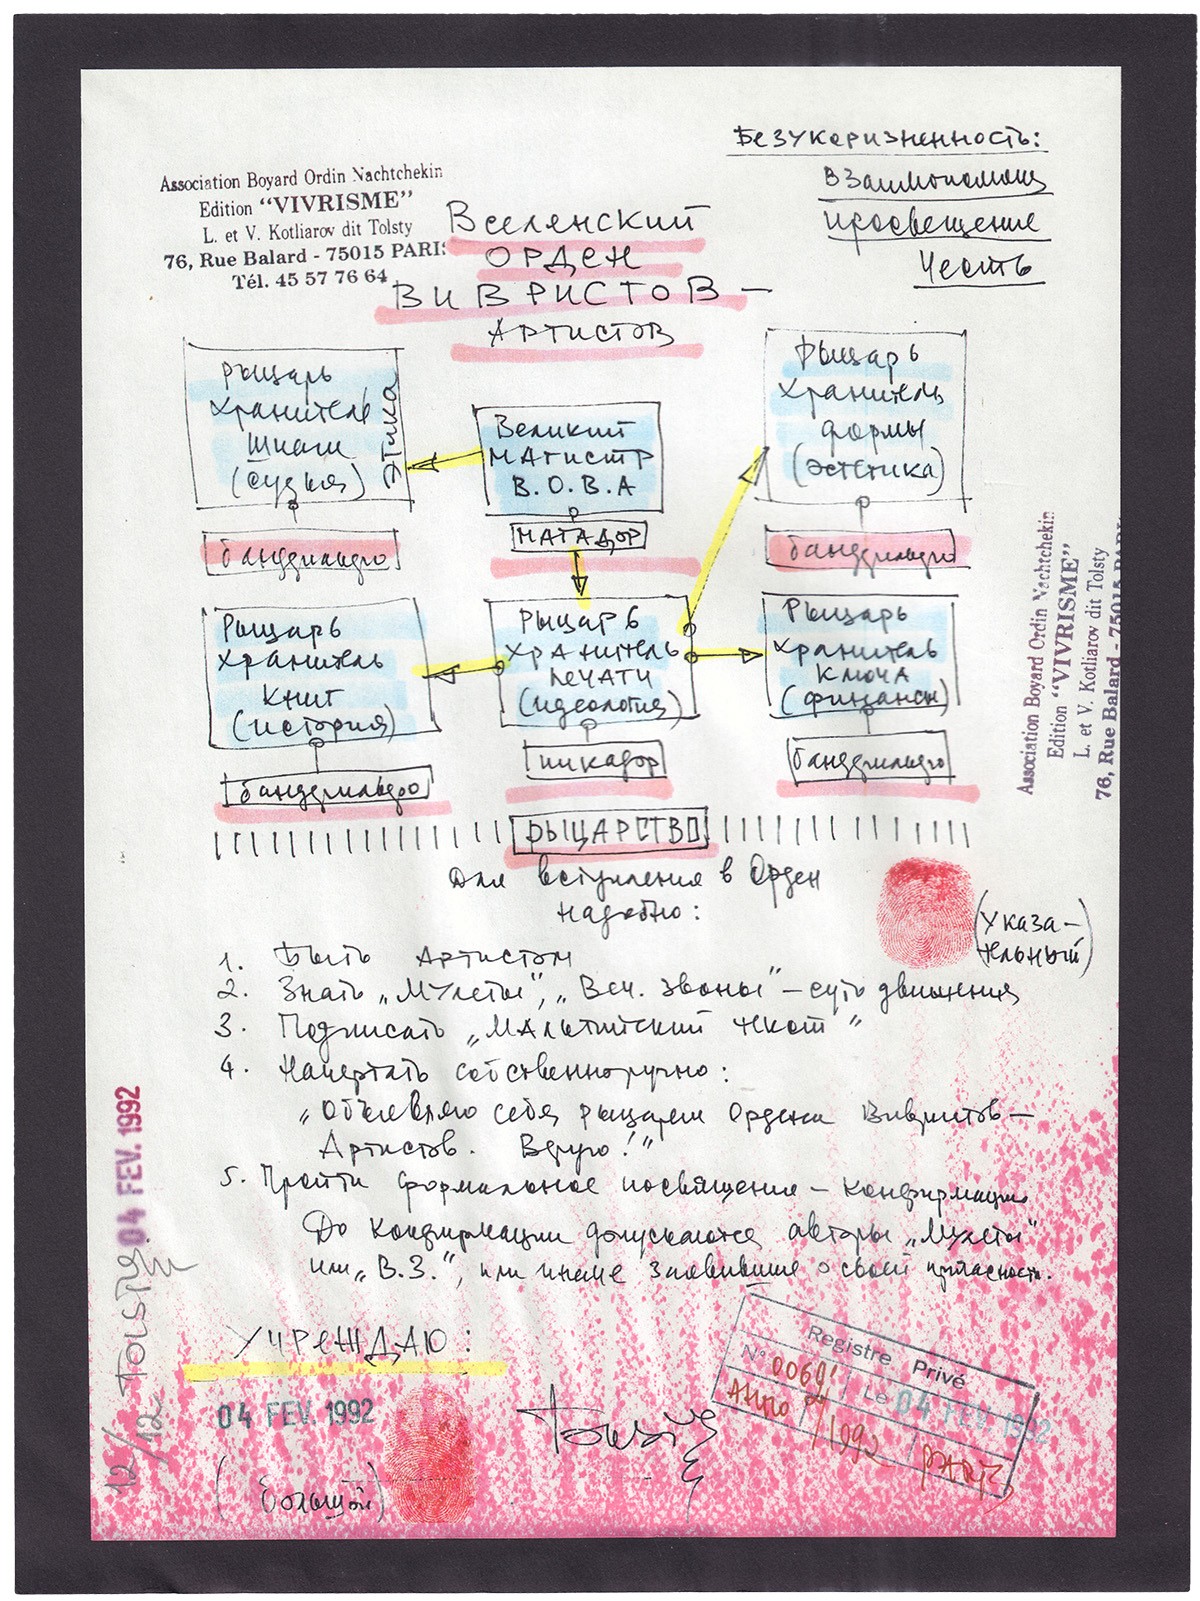 Безукоризненность:
Взаимопомощь
Просвещение
Честь
Association Boyard Ordin Nachtchekin
Edition "VIVRISME"
L. et V. Kotliarov dit Tolsty
76, Rue Balard - 75015 PARIS
Tél. 45 57 76 64
Вселенский
ОРДЕН
ВИВРИСТОВ —
АРТИСТОВ
Рыцарь
хранитель
шпаги
(судья)
ЭТИКА
Великий
МАГИСТР
В.О.В.А
МАТАДОР
Рыцарь
хранитель
формы
(эстетика)
бандерильеро
бандерильеро
Рыцарь
хранитель
книг
(история)
Рыцарь
хранитель
печати
(идеология)
Рыцарь
хранитель
ключа
(финансы)
бандерильеро
пикадор
бандерильеро
РЫЦАРСТВО
Association Boyard Ordin Nachtchekin
Edition "VIVRISME"
L. et V. Kotliarov dit Tolsty
76, Rue Balard - 75015 PARIS
Для вступления в Орден
надобно:
(Указа-
тельный)
1. Быть Артистом
2. Знать „Мулеты", „Веч. звоны" – суть движения
3. Подписать „Мальтийский
4. Начертать собственноручно:
„Объявляю себя рыцарем Ордена Вивристов –
Артистов. Верую!"
5. Пройти формальное посвящение – конфирмацию
До конфирмации допускаются авторы „Мулеты"
или „В.З.", или иначе заявившие о своей
УЧРЕЖДАЮ:
04 FEV. 1992
(большой)
Tolsty
Registre Privé
N° 0060 Le 04 FEV. 1992
1992 PARIS
12/12 TOLSTY
04 FEV. 1992